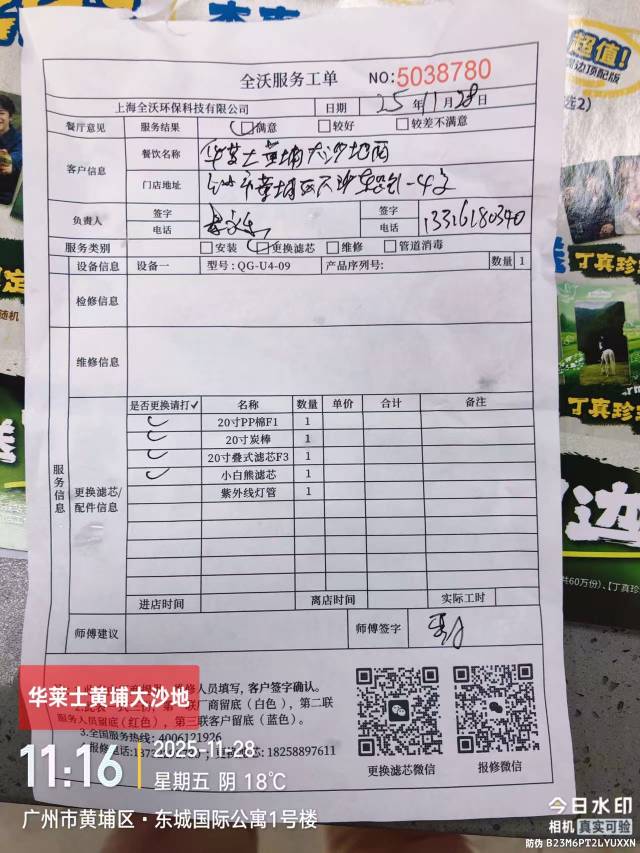 超值!
周边顶配版
选2)
全沃服务工单 NO:5038780
上海全沃环保科技有限公司 日期 25年11月28日
餐厅意见 服务结果 满意 较好 较差不满意
客户信息 餐饮名称 华莱士黄埔大沙地店
门店地址
负责人 签字 电话 签字 电话 13316180340
服务类别 安装 更换滤芯 维修 管道消毒
设备信息 设备一 型号:QG-U4-09 产品序列号: 数量 1
检修信息
维修信息
服务信息
更换滤芯/配件信息
是否更换请打✓ 名称 数量 单价 合计 备注
✓ 20寸PP棉F1 1
✓ 20寸炭棒 1
✓ 20寸叠式滤芯F3 1
✓ 小白熊滤芯 1
紫外线灯管 1
进店时间 离店时间 实际工时
师傅建议 师傅签字
人员填写,客户签字确认。
联厂商留底(白色),第二联
服务人员留底(红色),第三联客户留底(蓝色)。
3.全国服务热线:4006121926
18258897611
更换滤芯微信 报修微信
丁真珍
丁真珍
共60万份)、【丁真珍
华莱士黄埔大沙地
11:16 2025-11-28
星期五 阴 18℃
广州市黄埔区·东城国际公寓1号楼
今日水印
相机 真实可验
防伪 B23M6PT2LYUXXN